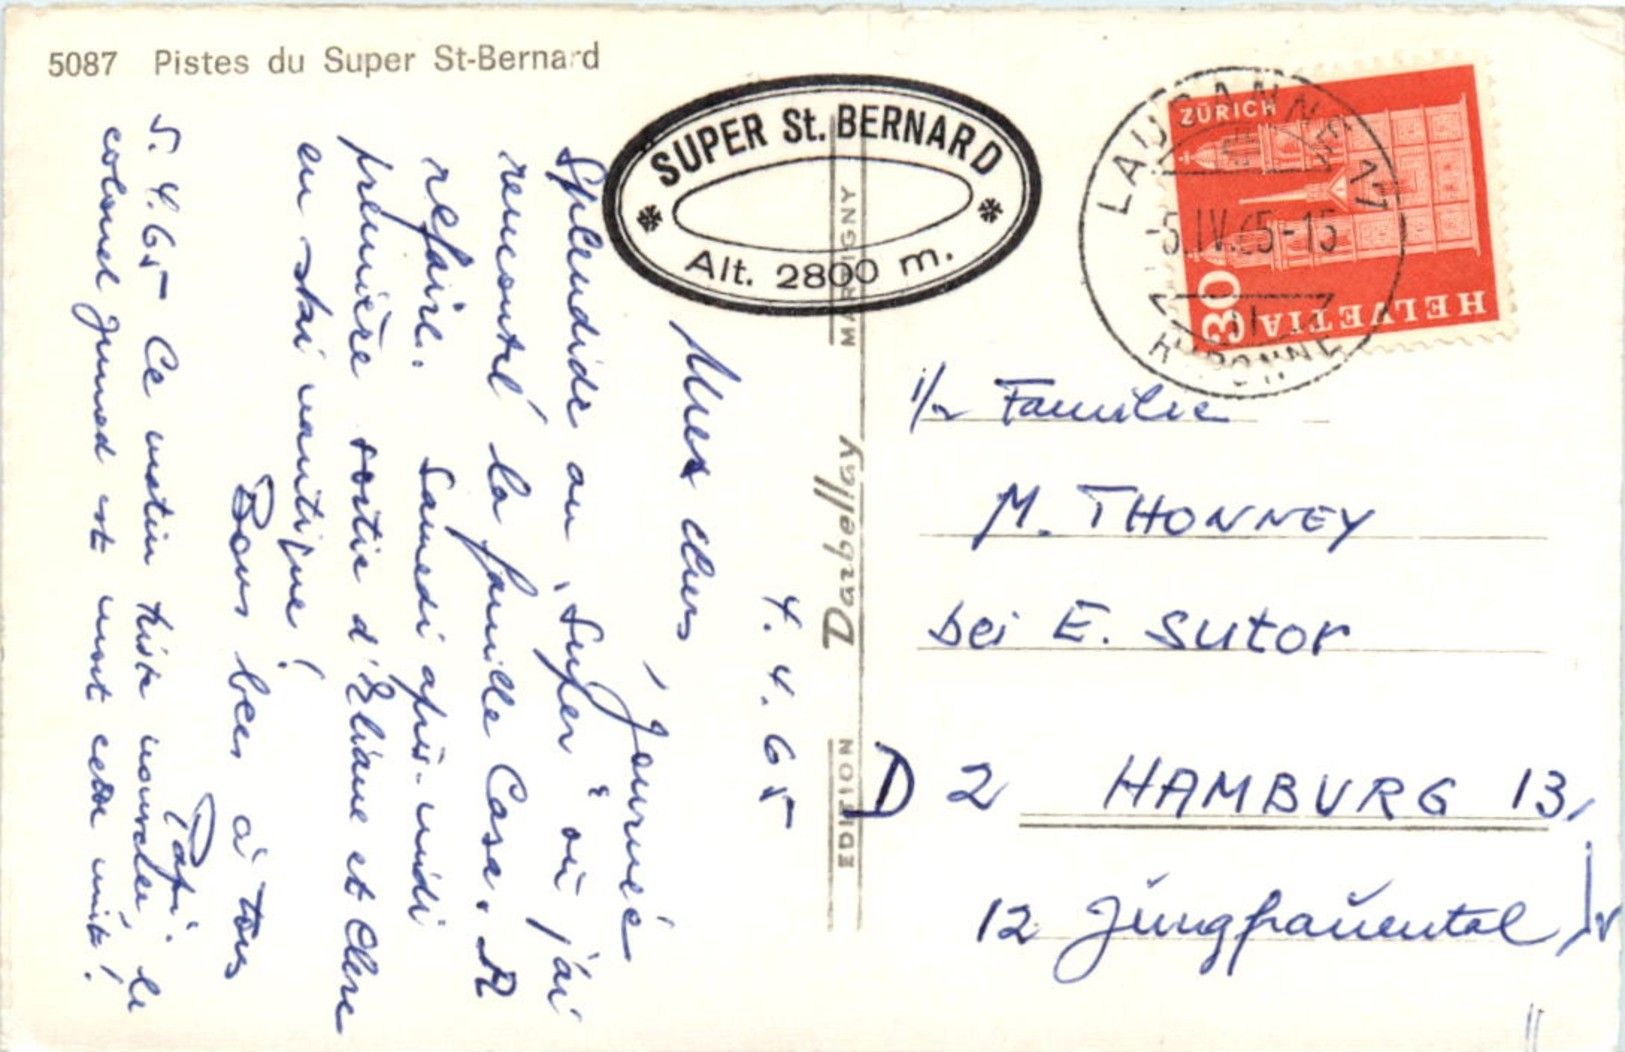 5087 Pistes du Super St-Bernard
SUPER St. BERNARD
Alt. 2800 m.
LAUSANNE 17
-5.IV.65-15
RIPONNE
ZÜRICH
30
HELVETIA
EDITION Darbellay MARTIGNY
4. 4. 65
Mes chers,
Journée
Splendide au "Super" où j'ai
remonté la famille Casa. A
refaire. Samedi après-midi
première sortie d'Eliane et Claire
en skai nautique!
Bons becs à tous
Papi.
5. 4. 65 Ce matin triste nouvelle, le
colonel Junod est mort cette nuit!
i/r Familie
M. THONNEY
bei E. Sutor
D 2 HAMBURG 13,
12 Jungfrauental